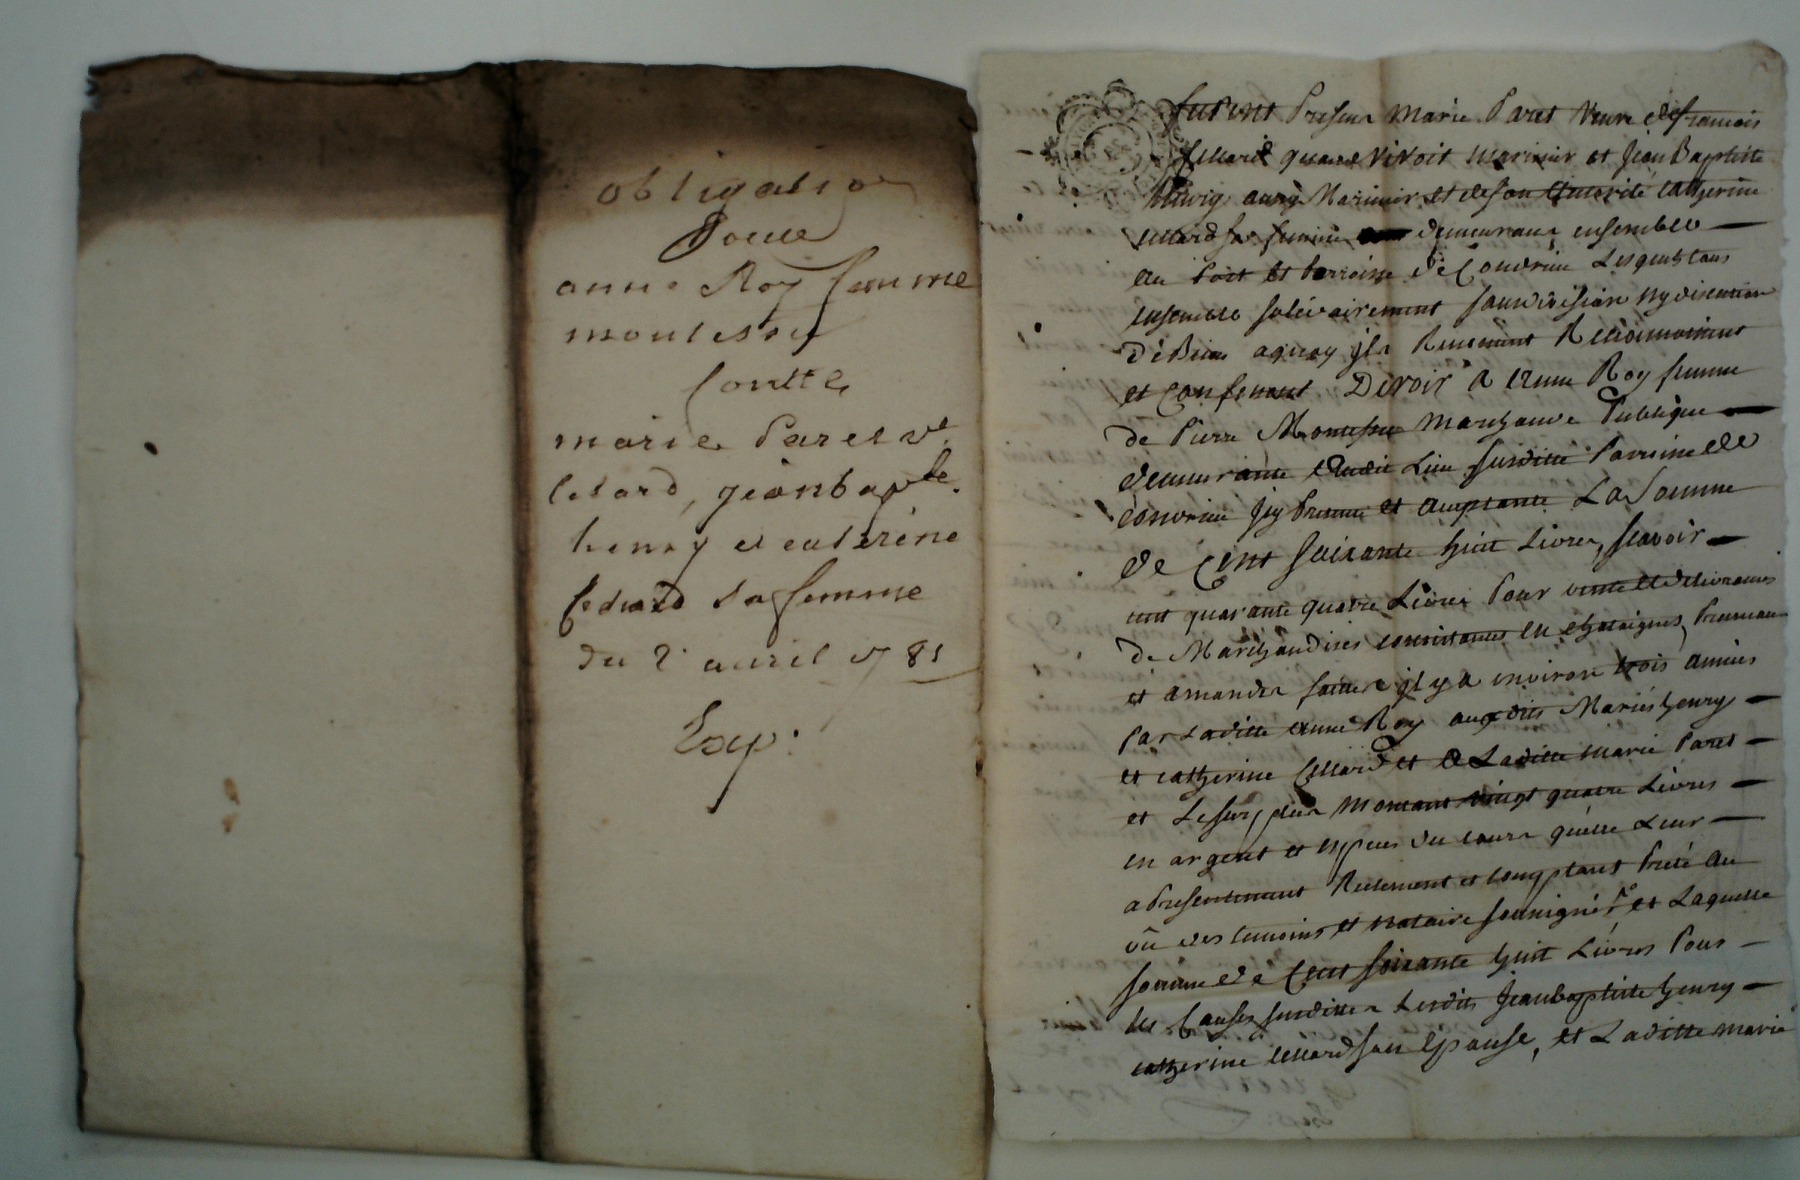 obligation
Pour
anne Roy femme
montessuy
Contre
marie Paret ve
Celard, jean bapte.
henry et caterine
Celard sa femme
du 2 avril 1781
Exp.
furent Presens Marie Paret veuve de francois
Cellard quand vivoit marinier et Jean Baptiste
henrÿ aussy Marinier et de son authorité catherine
Cellard sa femme demeurans ensemble
au Port et Parroisse de Condrieu Lesquels tous
ensemble solidairement sans division ny discution
de Biens aquoy ils Renoncent Reconnoissent
et Confessent Devoir a anne Roy femme
de Pierre Montessuy Marchande Publique
demeurante audit Lieu susditte Parroisse de
Condrieu Icy Presente et acceptante La Somme
de Cent soixante huit Livres, scavoir
cent quarante quatre Livres Pour vente et delivrances
de Marchandises consistantes en chataignes, Pruneaux
et amandes faittes il y a environ trois années
Par Laditte anne Roy auxdits Mariés henry
et catherine Cellard et a Laditte marie Paret
et Le surplus Montant vingt quatre Livres
en argent et especes du cours qu'elle Leur
a Presentement Réelement et comptant Preté au
vû des temoins et notaire soussignés et Laquelle
somme de Cent soixante huit Livres Pour
les Causes susdittes Lesdits Jean baptiste henry
catherine Cellard son Epouse, et Laditte marie